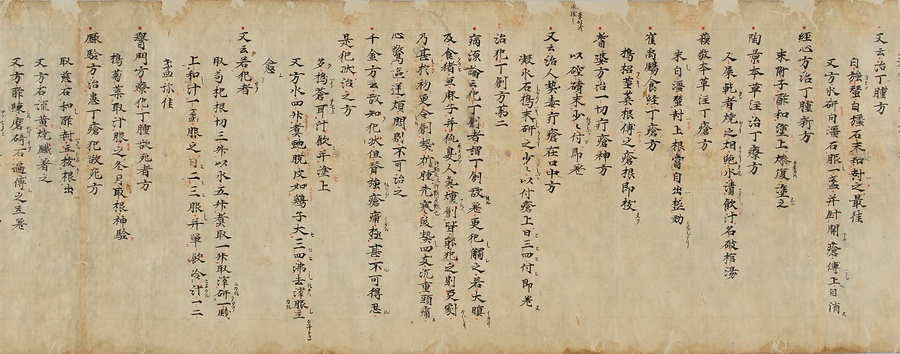 又云治丁腫方
白殭蚕白礓石末和封之最佳
又方水研白礬石服一盞并封開瘡傅上日消
經心方治丁腫新方
末附子酢和塗上燥復塗之
陶景本草注治丁療方
人屎乾者燒之如炮水漬飲汁名破棺湯
蘇敬本草注丁瘡方
末白殭蚕封上根當自出極効
崔禹錫食經丁瘡方
搗菜根傅之瘡根即拔
耆婆方治一切疔瘡神方
以硇砂末少々付即差
又云治人契毒疔瘡在口中方
凝水石搗末研之少々以付瘡上日三四付即差
治犯丁創方第二
病源論云犯丁創者謂丁創欲差更犯觸之若大嗔
及食猪魚麻子并狐臭人氣熏創皆能犯之則更劇
乃甚於初更令創熱焮腫先寒後熱四支沉重頭痛
心驚惡逆煩悶則不可治之
千金方云欲知犯状但脊強瘡痛極甚不可得忍
是犯状治之方
多搗蒼耳汁飲并塗上
又方水四升煮蛇脱皮如鶏子大三四沸去滓服立
愈
又云若犯者
取苟杞根切三升以水五升煮取一升取滓研一
上和汁一盞服之日二三服并單飲冷汁一二
盞亦佳
醫門方療犯丁腫欲死者方
搗菊菜取汁服之冬月取根神驗
録驗方治患丁瘡犯欲死方
取慈石和酢封立拔根出
又方石流黄燒針烙之
又方酢磨研石遍傅之立差